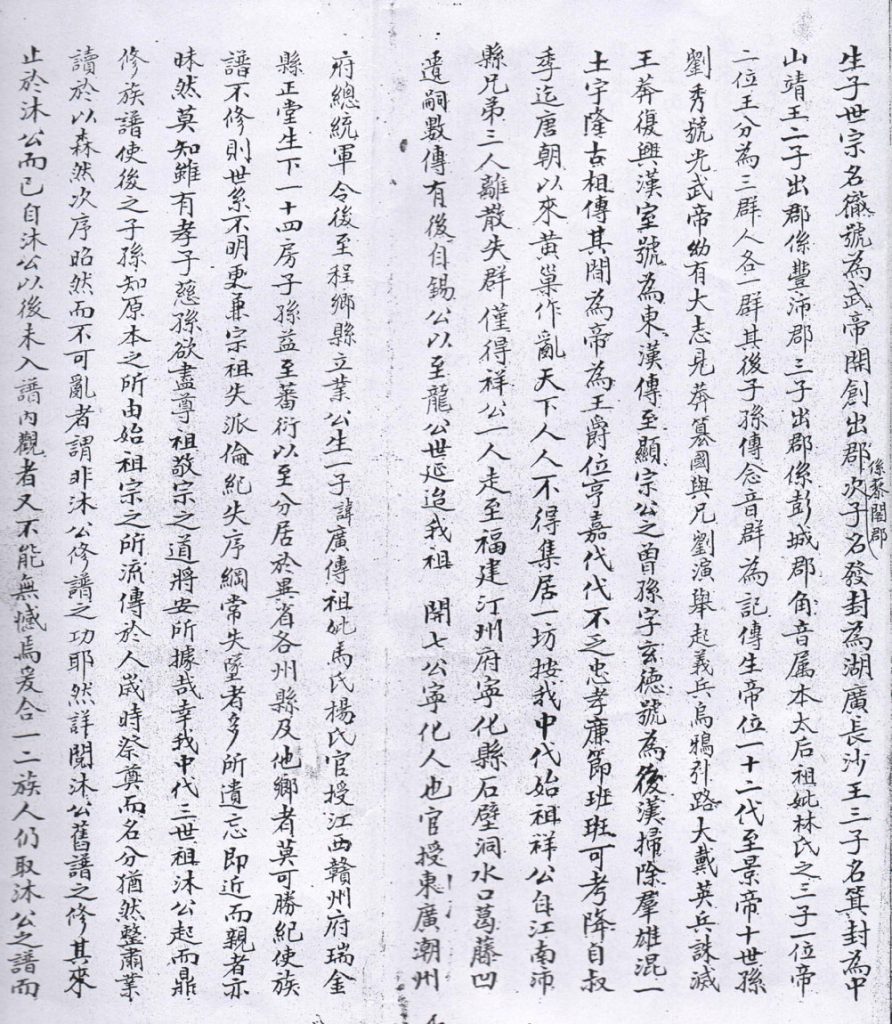 生子世宗名徹號為武帝開創出郡次子名發封為湖廣長沙王三子名箕封為中
係黎閣郡
山靖王二子出郡係豐沛郡三子出郡係彭城郡角音属本太后祖妣林氏之三子一位帝
二位王分為三群人各一群其後子孫傳念音群為記傳生帝位一十二代至景帝十世孫
劉秀號光武帝幼有大志見莽篡國與兄劉演舉起義兵烏鴉引路大戴英兵誅滅
王莽復興漢室號為東漢傳至顯宗公之曾孫字玄德號為後漢掃除羣雄混一
土宇隆古祖傳其間為帝為王爵位亨嘉代代不乏忠孝廉節班班可考降自叔
季迄唐朝以來黃巢作亂天下人人不得集居一坊按我中代始祖祥公自江南沛
縣兄弟三人離散失群僅得祥公一人走至福建汀州府寧化縣石壁洞水口葛藤凹
遺嗣數傳有後自錫公以至龍公世延迨我祖 開七公寧化人也官授東廣潮州
府總統軍令後至程鄉縣立業公生一子諱廣傳祖妣馬氏揚氏官授江西贛州府瑞金
縣正堂生下一十四房子孫益至蕃衍以至分居於異省各州縣及他鄉者莫可勝紀使族
譜不修則世系不明更兼宗祖失派倫紀失序綱常失墜者多所遺忘即近而親者亦
昧然莫知雖有孝子慈孫欲盡尊祖敬宗之道將安所據哉幸我中代三世祖沐公起而鼎
修族譜使後之子孫知原本之所由始祖宗之所流傳於人歲時祭奠而名分猶然整肅業
讀於以森然次序昭然而不可亂者謂非沐公修譜之功耶然詳閱沐公舊譜之修其來
止於沐公而已自沐公以後未入譜內觀者又不能無憾焉爰合一二族人仍取沐公之譜而